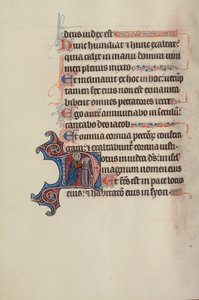 deus iudex est
Hunc humiliat & hunc exaltat:
quia calix in manu domini uini
meri plenus mixto
Et inclinauit ex hoc in hoc: uerūp
tamen fex eius non est exinanita
bibent omnes peccatores terre
Ego autē annunciabo in seculū:
cantabo deo iacob
Et omnia cornua pctorū confrin
gam: & exaltabunt̄ cornua iusti
Notus in iudea ds: in isrl
magnum nomen eius
Et fcūs est in pace locus
eius: & habitatō eius in syon